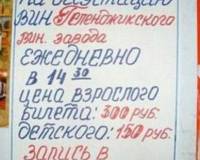 на дегустацию
вин Геленджикского
вин. завода
ежедневно
в 14 30
цена взрослого
билета: 300 руб.
детского: 150 руб.
запись в